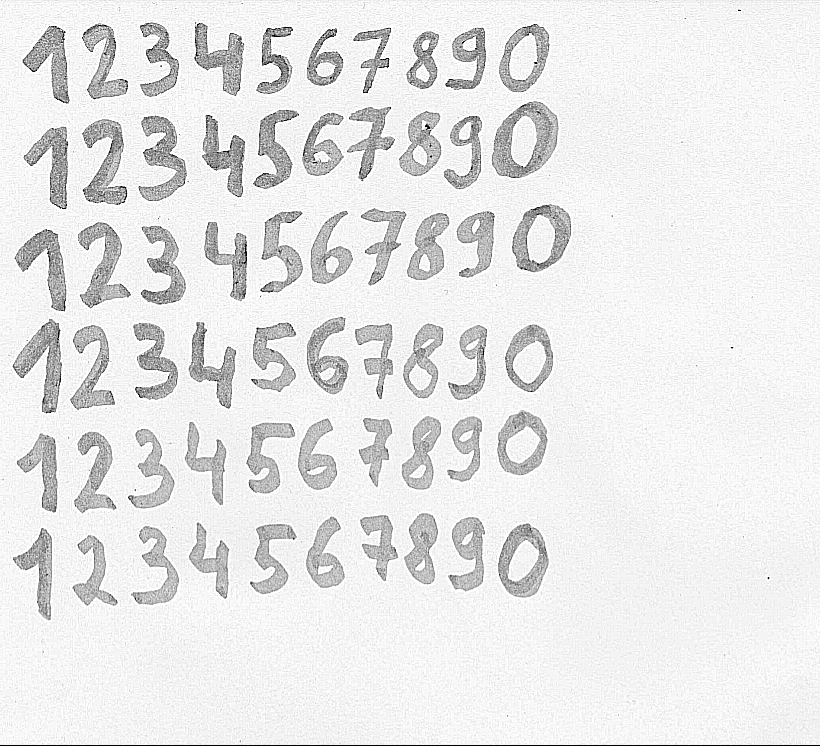 1234567890
1234567890
1234567890
1234567890
1234567890
1234567890